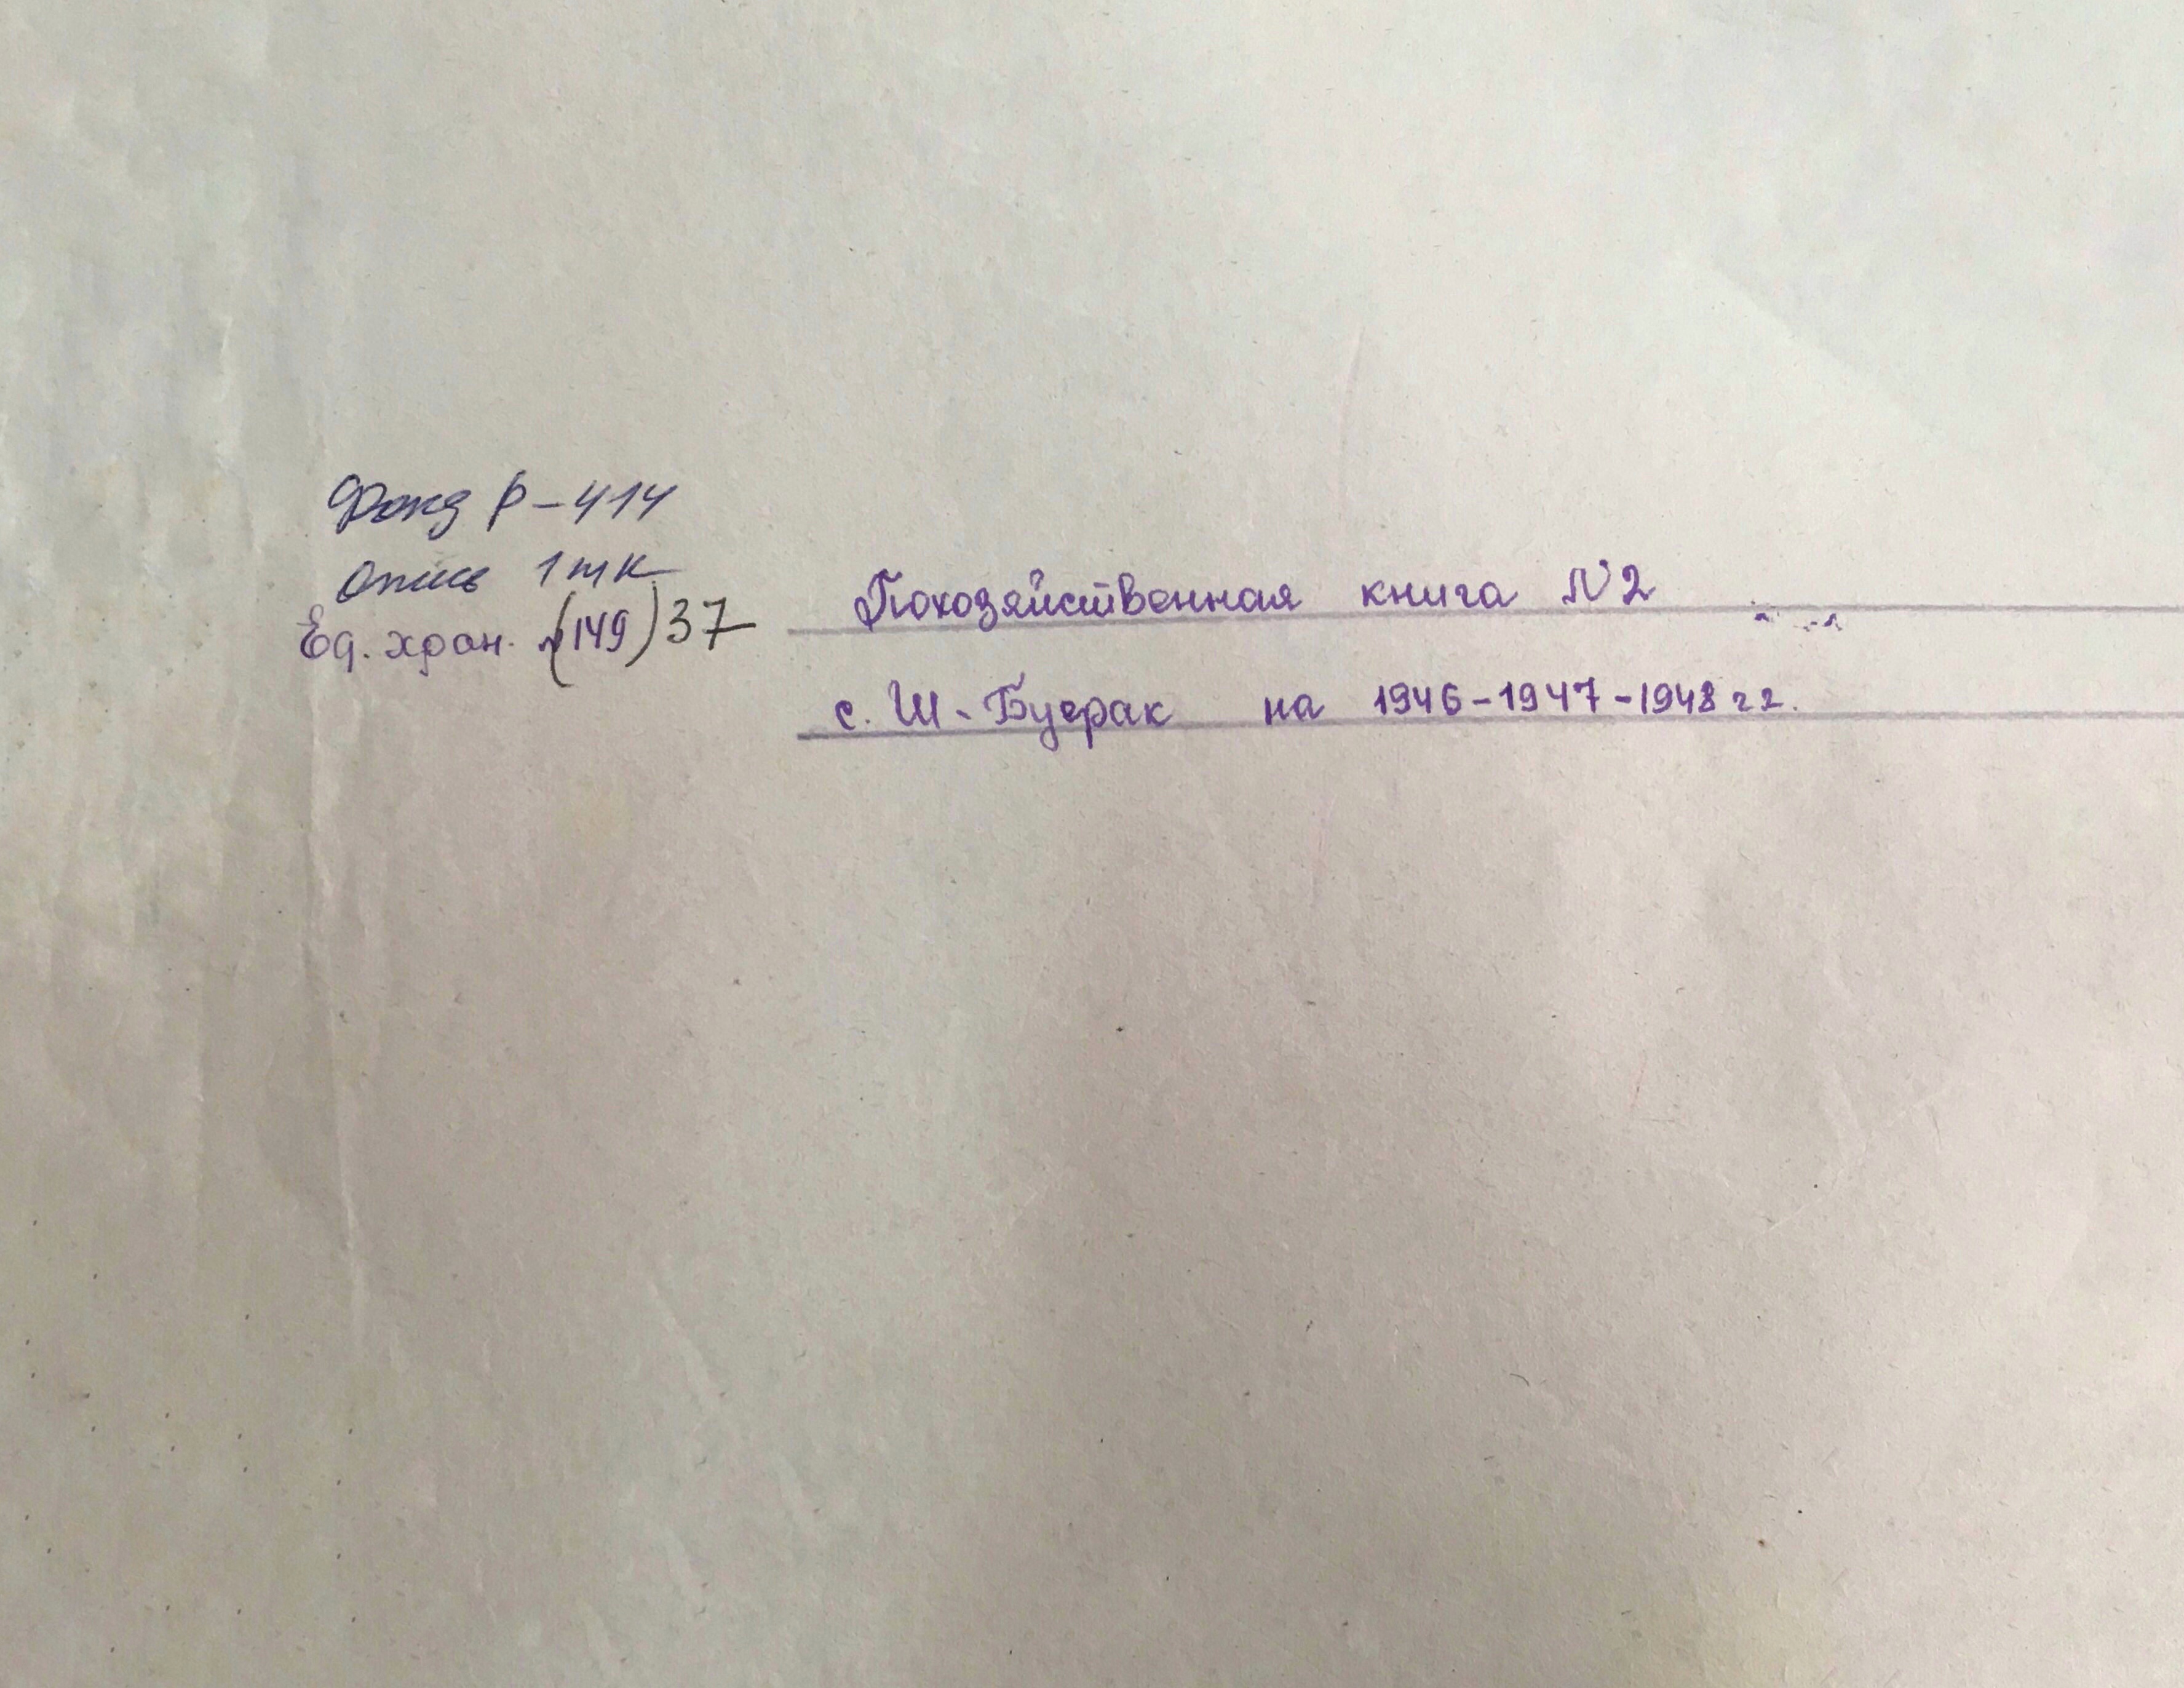 Фонд Р-414
Опись 1тк
Ед. хран. (149) 37
Похозяйственная книга N2
с. Ш-Буерак на 1946-1947-1948 гг.